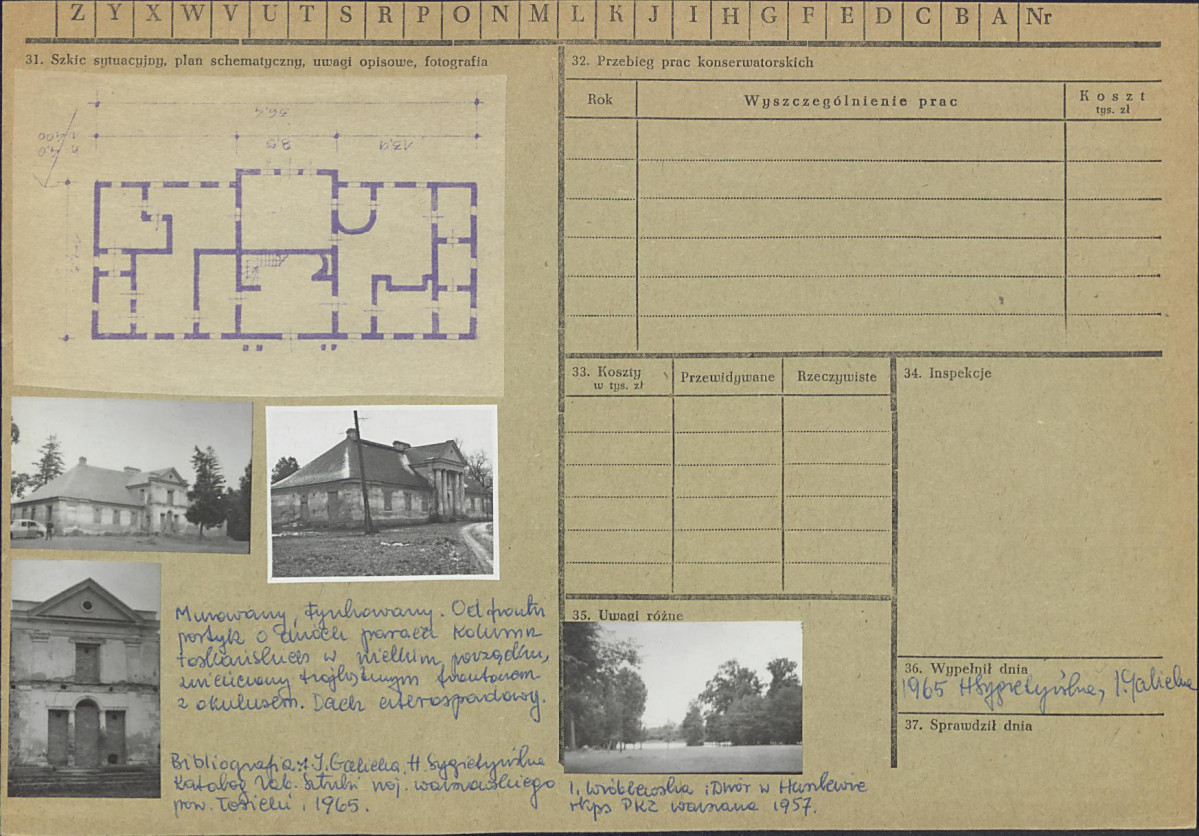 Z Y X W V U T S R P O N M L K J I H G F E D C B A Nr
31. Szkic sytuacyjny, plan schematyczny, uwagi opisowe, fotografia
36,4
8,9 13,9
Murowany, tynkowany. Od frontu
portyk o dwóch parach kolumn
toskańskich w wielkim porządku,
zwieńczony trójkątnym frontonem
z okulusem. Dach czterospadowy.
Bibliografia: I. Galicka, H. Sygietyńska
Katalog Zab. Sztuki woj. warszawskiego
pow. Łosicki, 1965.
32. Przebieg prac konserwatorskich
Rok Wyszczególnienie prac Koszt
tys. zł
33. Koszty
w tys. zł
Przewidywane Rzeczywiste
34. Inspekcje
35. Uwagi różne
I. Wróblewska : Dwór w Huszlewie
rkps PKZ Warszawa 1957.
36. Wypełnił dnia
1965 H Sygietyńska, I. Galicka
37. Sprawdził dnia